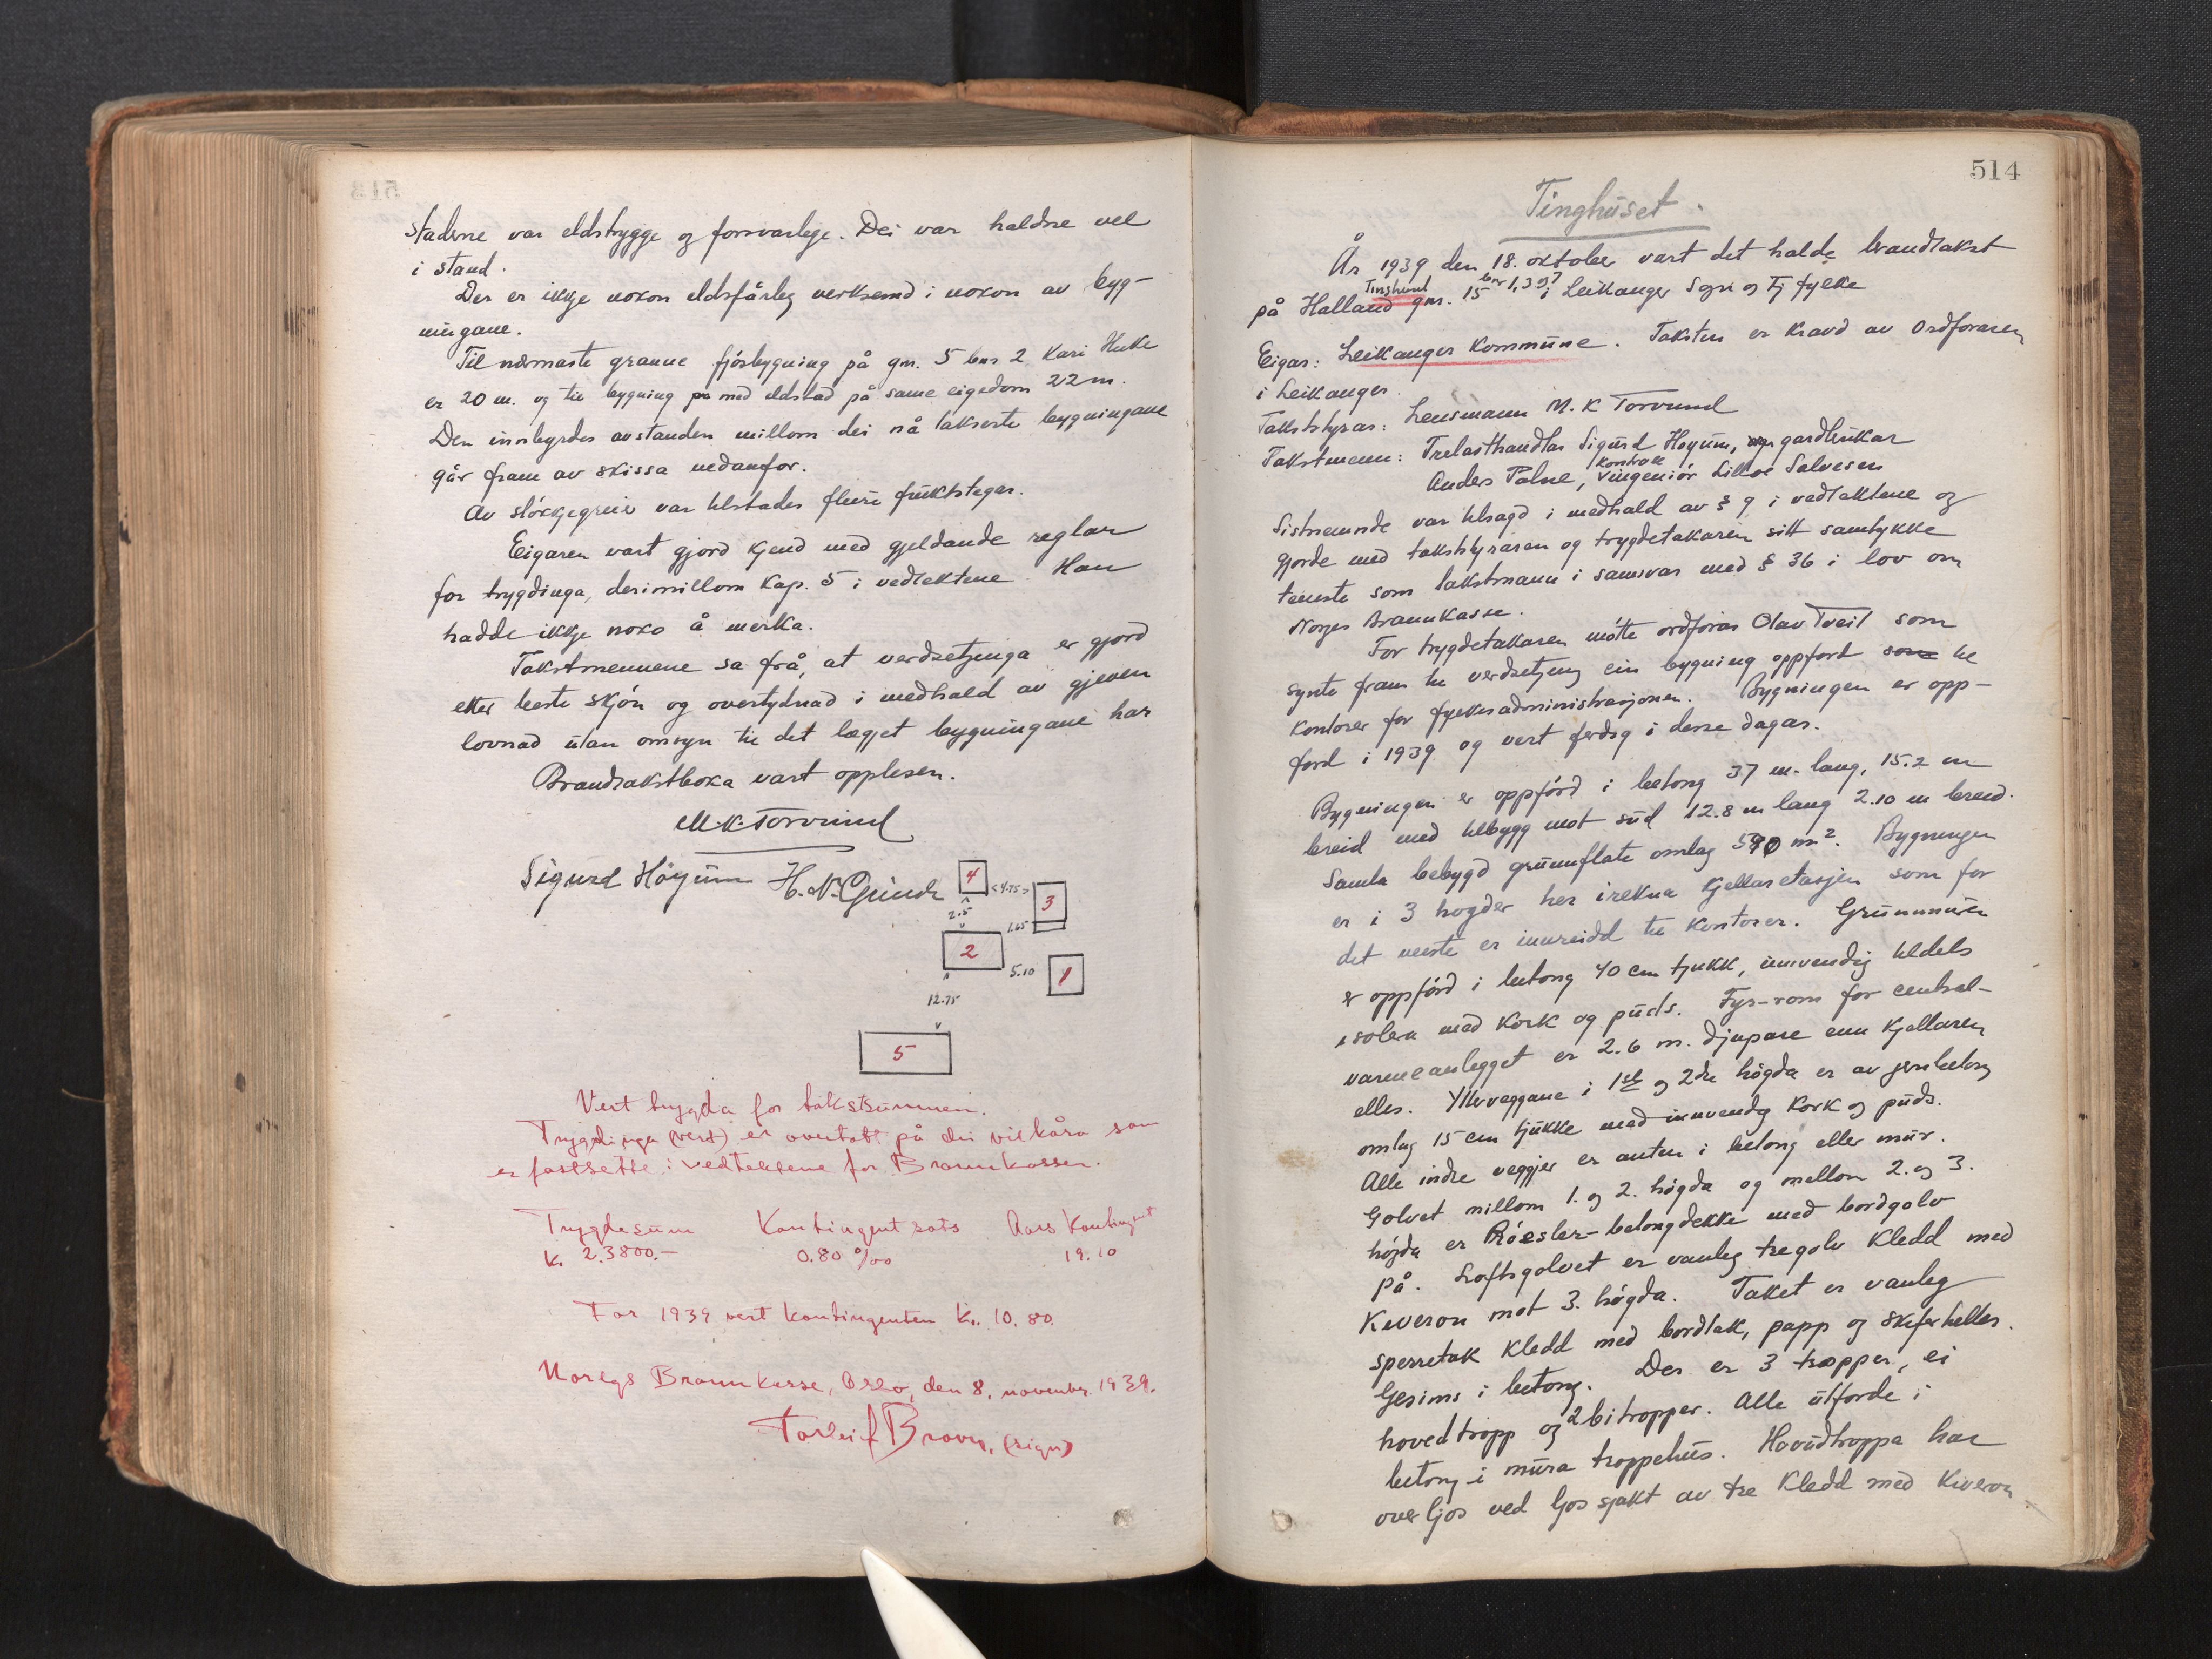 stadene var eldstrygge og forsvarlege. Dei var haldne vel
i stand.
Der er ikkje nokon eldsfårleg verksemd i nokon av byg-
ningane.
Til næmaste granne fjósbygning på gnr. 5 bnr 2 Kari Huke
er 20 m. og til bygning på med eldstad på same eigedom 22 m.
Den innbyrdes avstanden millom dei nå takserte bygningane
går fram av skissa nedanfor.
Av slökjegreier var tilstades fleire fruktsteger.
Eigaren vart gjord kjend med gjeldande reglar
for trygdinga, derimillom Kap. 5 i vedtektene. Han
hadde ikkje noko å merka.
Takstmennene sa frå, at verdsetjinga er gjord
etter beste skjön og overtydnad i medhald av gjeven
lovnad utan omsyn til det lægjet bygningane har
Brandtakstboka vart opplesen.
M.K. Torvund
Sigurd Höyum H. N. Grinde
4
<4.75>
3
2.5
1.65
2
5.10
1
12.75
5
Vert trygda for takstsummen.
Trygdinga (vert) er overtatt på dei vilkåra som
er fastsette i vedtektene for Brannkassen.
Trygdesum Kontingent sats Aars Kontingent
k. 2.3800.- 0.80 ‰ 19.10
For 1939 vert kontingenten kr. 10.80.
Noregs Brannkasse, Oslo, den 8. november 1939.
Torleif (sign)
514
Tinghuset.
År 1939 den 18. oktober vart det halde brandtakst
på Halland Tinghund gnr. 15 bnr 1, 3 og 7 i Leikanger Sogn og Fj fylke
Eigar: Leikanger Kommune. Taksten er kravd av Ordforaren
i Leikanger.
Takststyrar: Lensmann M. K Torvund
Takstmenn: Trelasthandlar Sigurd Høyum, gardbrukar
Anders Palne, kontroll ingeniör Salvesen
Sistnemnde var tilsagd i medhald av § 9 i vedtektene og
gjorde med takststyraren og trygdetakaren sitt samtykke
teneste som takstmann i samsvar med § 36 i lov om
Norges Brannkasse.
For trygdetakaren mótte ordförar Olav Tveit som
synte fram til verdsetjing ein bygning oppford som til
kontorer for fylkesadministrasjonen. Bygningen er opp-
ford i 1939 og vert ferdig i desse dagar.
Bygningen er oppförd i betong 37 m. lang, 15.2 m
breid med tilbygg mot sud 12.8 m lang 2.10 m breid.
Samla bebygd grunnflate omlag 590 m². Bygningen
er i 3 hogder her irekna kjellaretasjen som for
det meste er innreidd til kontorer. Grunnmuren
er oppförd i betong 40 cm tjukk, innvendig tildels
isolera med kork og puds. Fyr-rom for central-
varmeanlegget er 2.6 m. djupare enn kjellaren
elles. Ytterveggane i 1ste og 2dre högda er av jernbetong
omlag 15 cm tjukke med innvendig kork og puds.
Alle indre veggjer er anten i betong eller mur.
Golvet millom 1. og 2. högda og mellom 2. og 3.
högda er Rösler-betongdekke med bordgolv
på. Loftsgolvet er vanleg tregolv kledd med
Kiveron mot 3. högda. Taket er vanleg
sperretak kledd med bordtak, papp og skiferheller.
Gesims i betong. Der er 3 trapper, ei
hovedtropp og 2 bitropper. Alle utforde i
betong i mura troppehus. Hovudtroppa har
overljos ved ljossjakt av tre kledd med Kiveron.